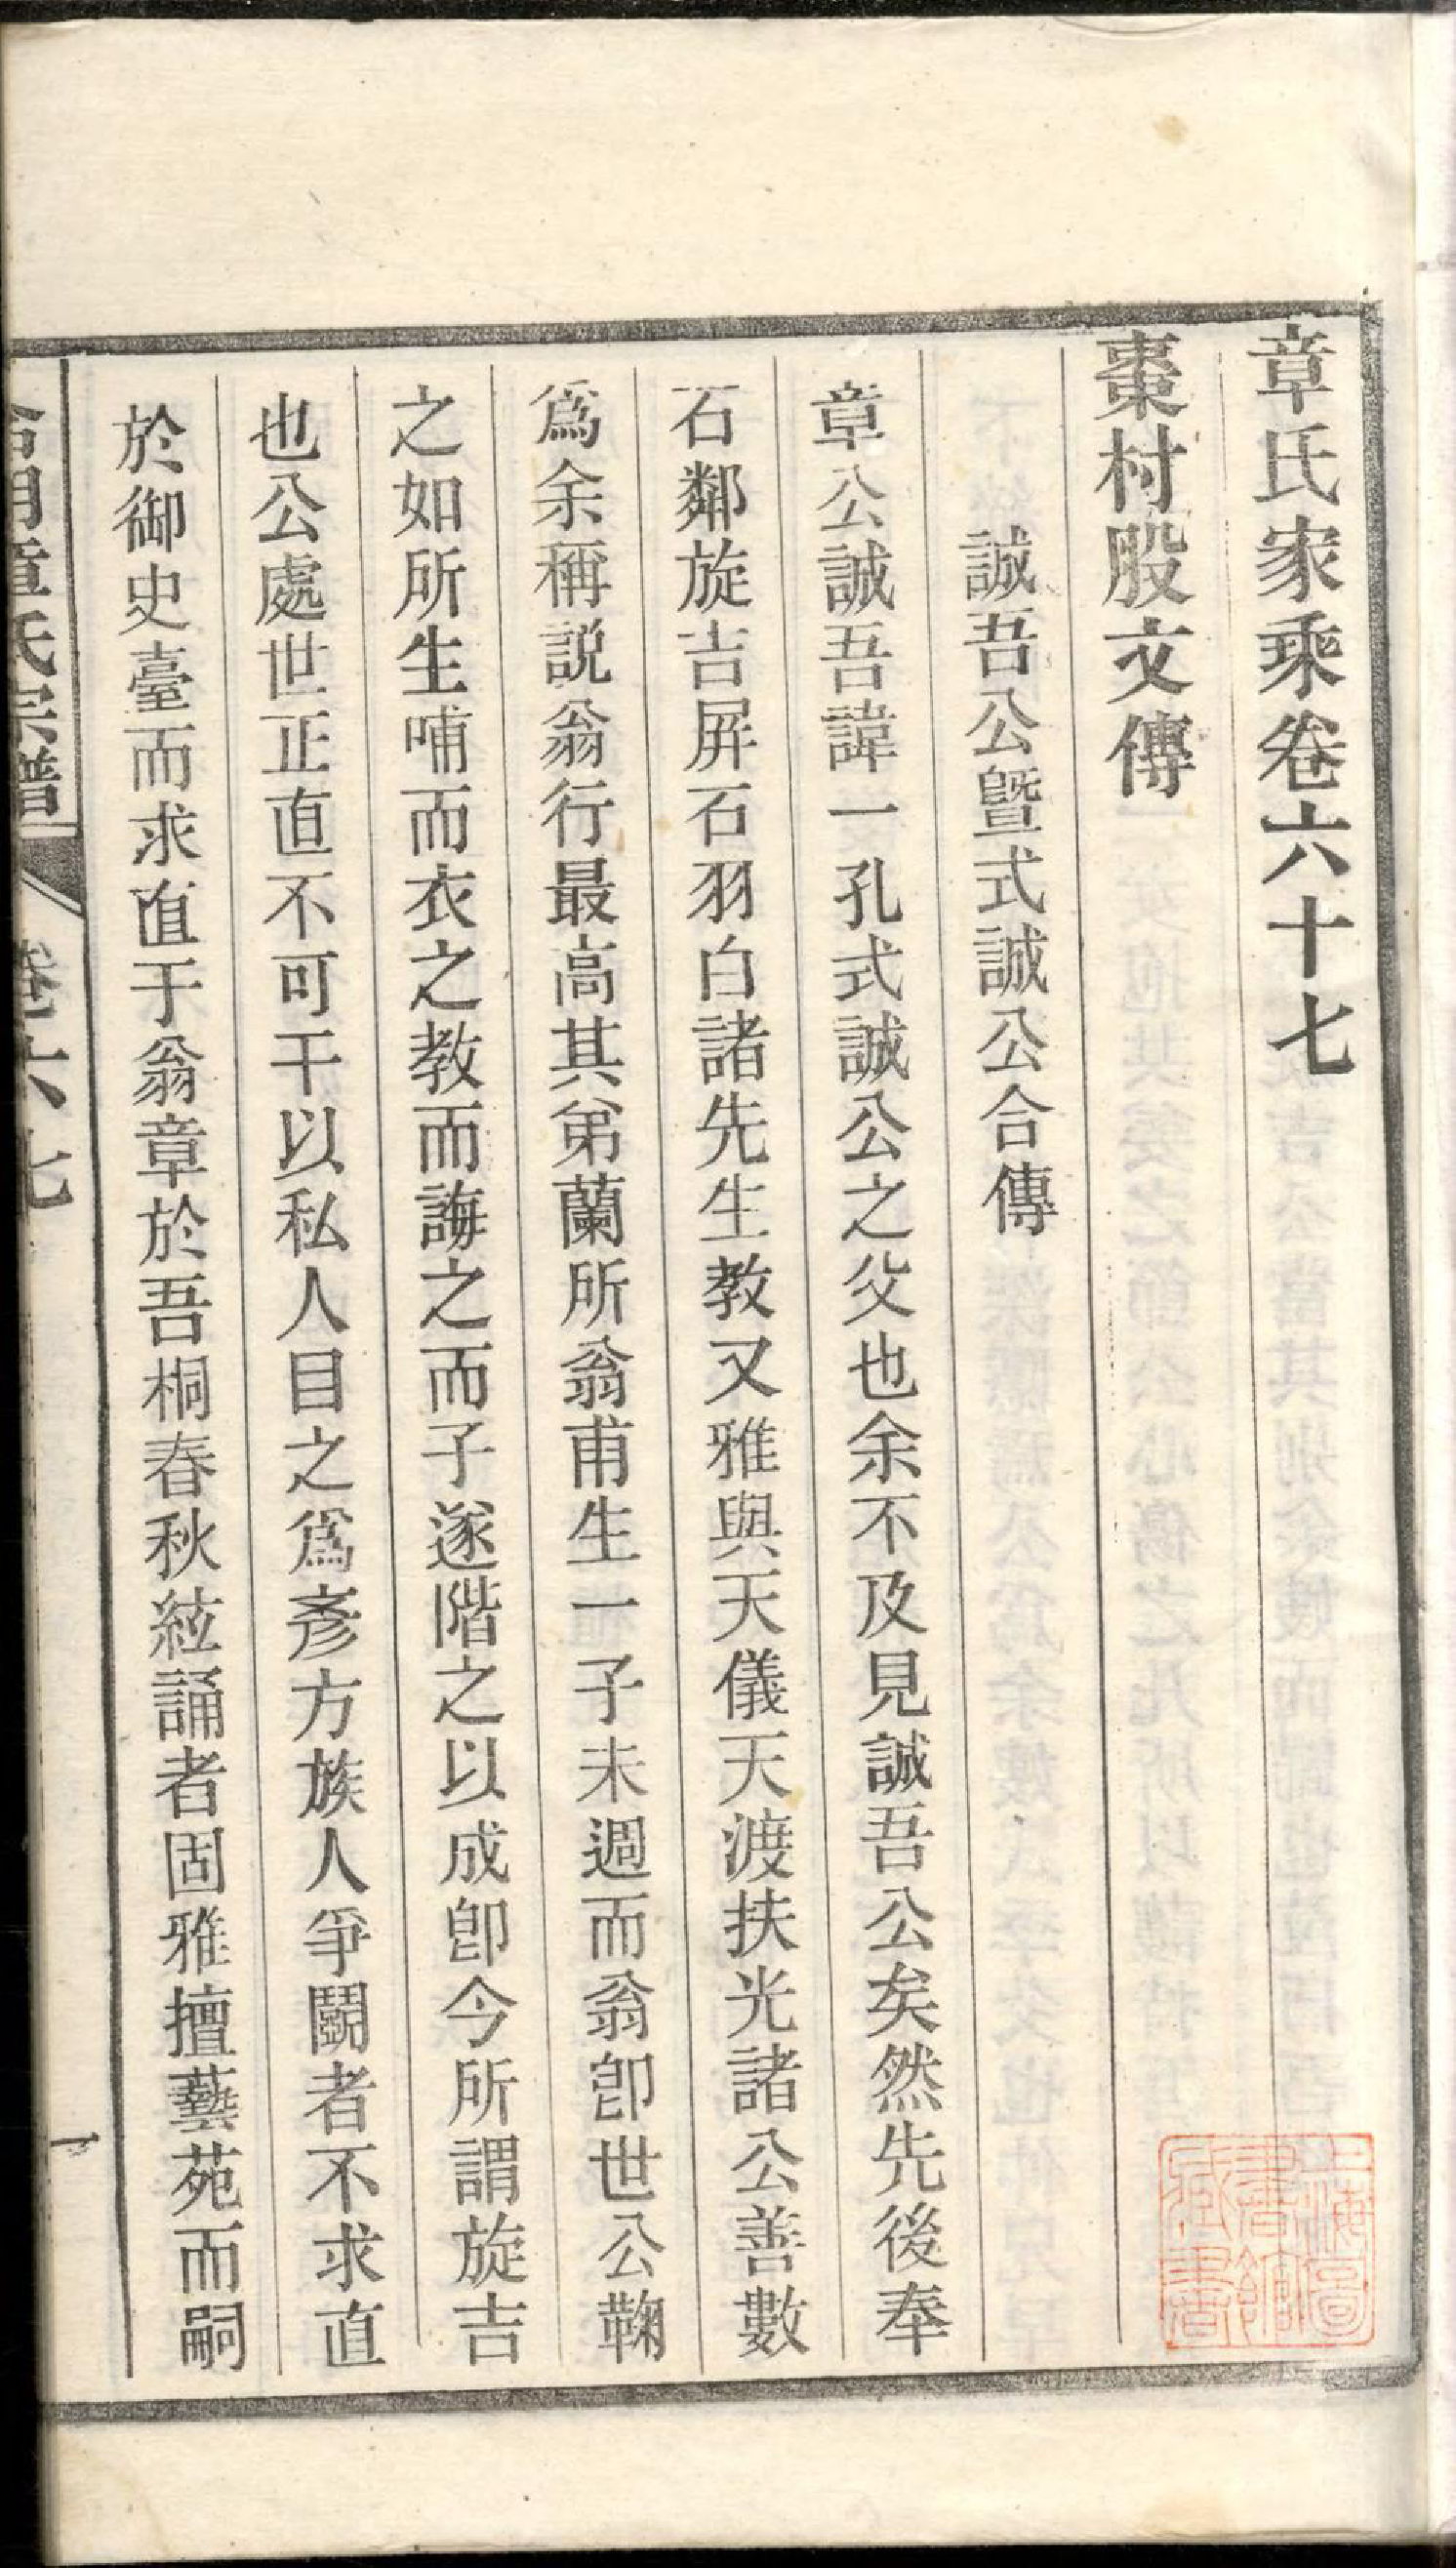 章氏家乘卷六十七
棗村股文傳
誠吾公曁式誠公合傳
章公誠吾諱一孔式誠公之父也余不及見誠吾公矣然先後奉
石鄰旋吉屛石羽白諸先生教又雅與天儀天渡扶光諸公善數
爲余稱説翁行最高其弟蘭所翁甫生一子未週而翁卽世公鞠
之如所生哺而衣之教而誨之而子遂階之以成卽今所謂旋吉
也公處世正直不可干以私人目之爲彥方族人爭鬭者不求直
於御史臺而求直于翁章於吾桐春秋絃誦者固雅擅藝苑而嗣
章氏宗譜
卷六七
一
上海圖書館藏書